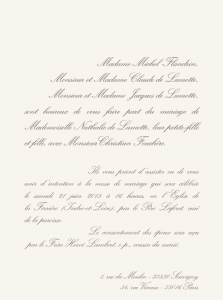 Madame Michel Flandrin,
Monsieur et Madame Claude de Lamotte,
Monsieur et Madame Jacques de Lamotte,
sont heureux de vous faire part du mariage de
Mademoiselle Nathalie de Lamotte, leur petite-fille
et fille, avec Monsieur Christian
Ils vous prient d'assister ou de vous
unir d'intention à la messe de mariage qui sera célébrée
le samedi 21 juin 2013 à 16 heures, en l'Eglise de la
Ferrière (Indre-et-Loire), par le Père Lafont, curé
de la paroisse.
Le consentement des époux sera reçu
par le Frère Hervé Lambert, o.p., cousin du marié.
2, rue du Moulin -
34, rue Vienne - 75016 Paris